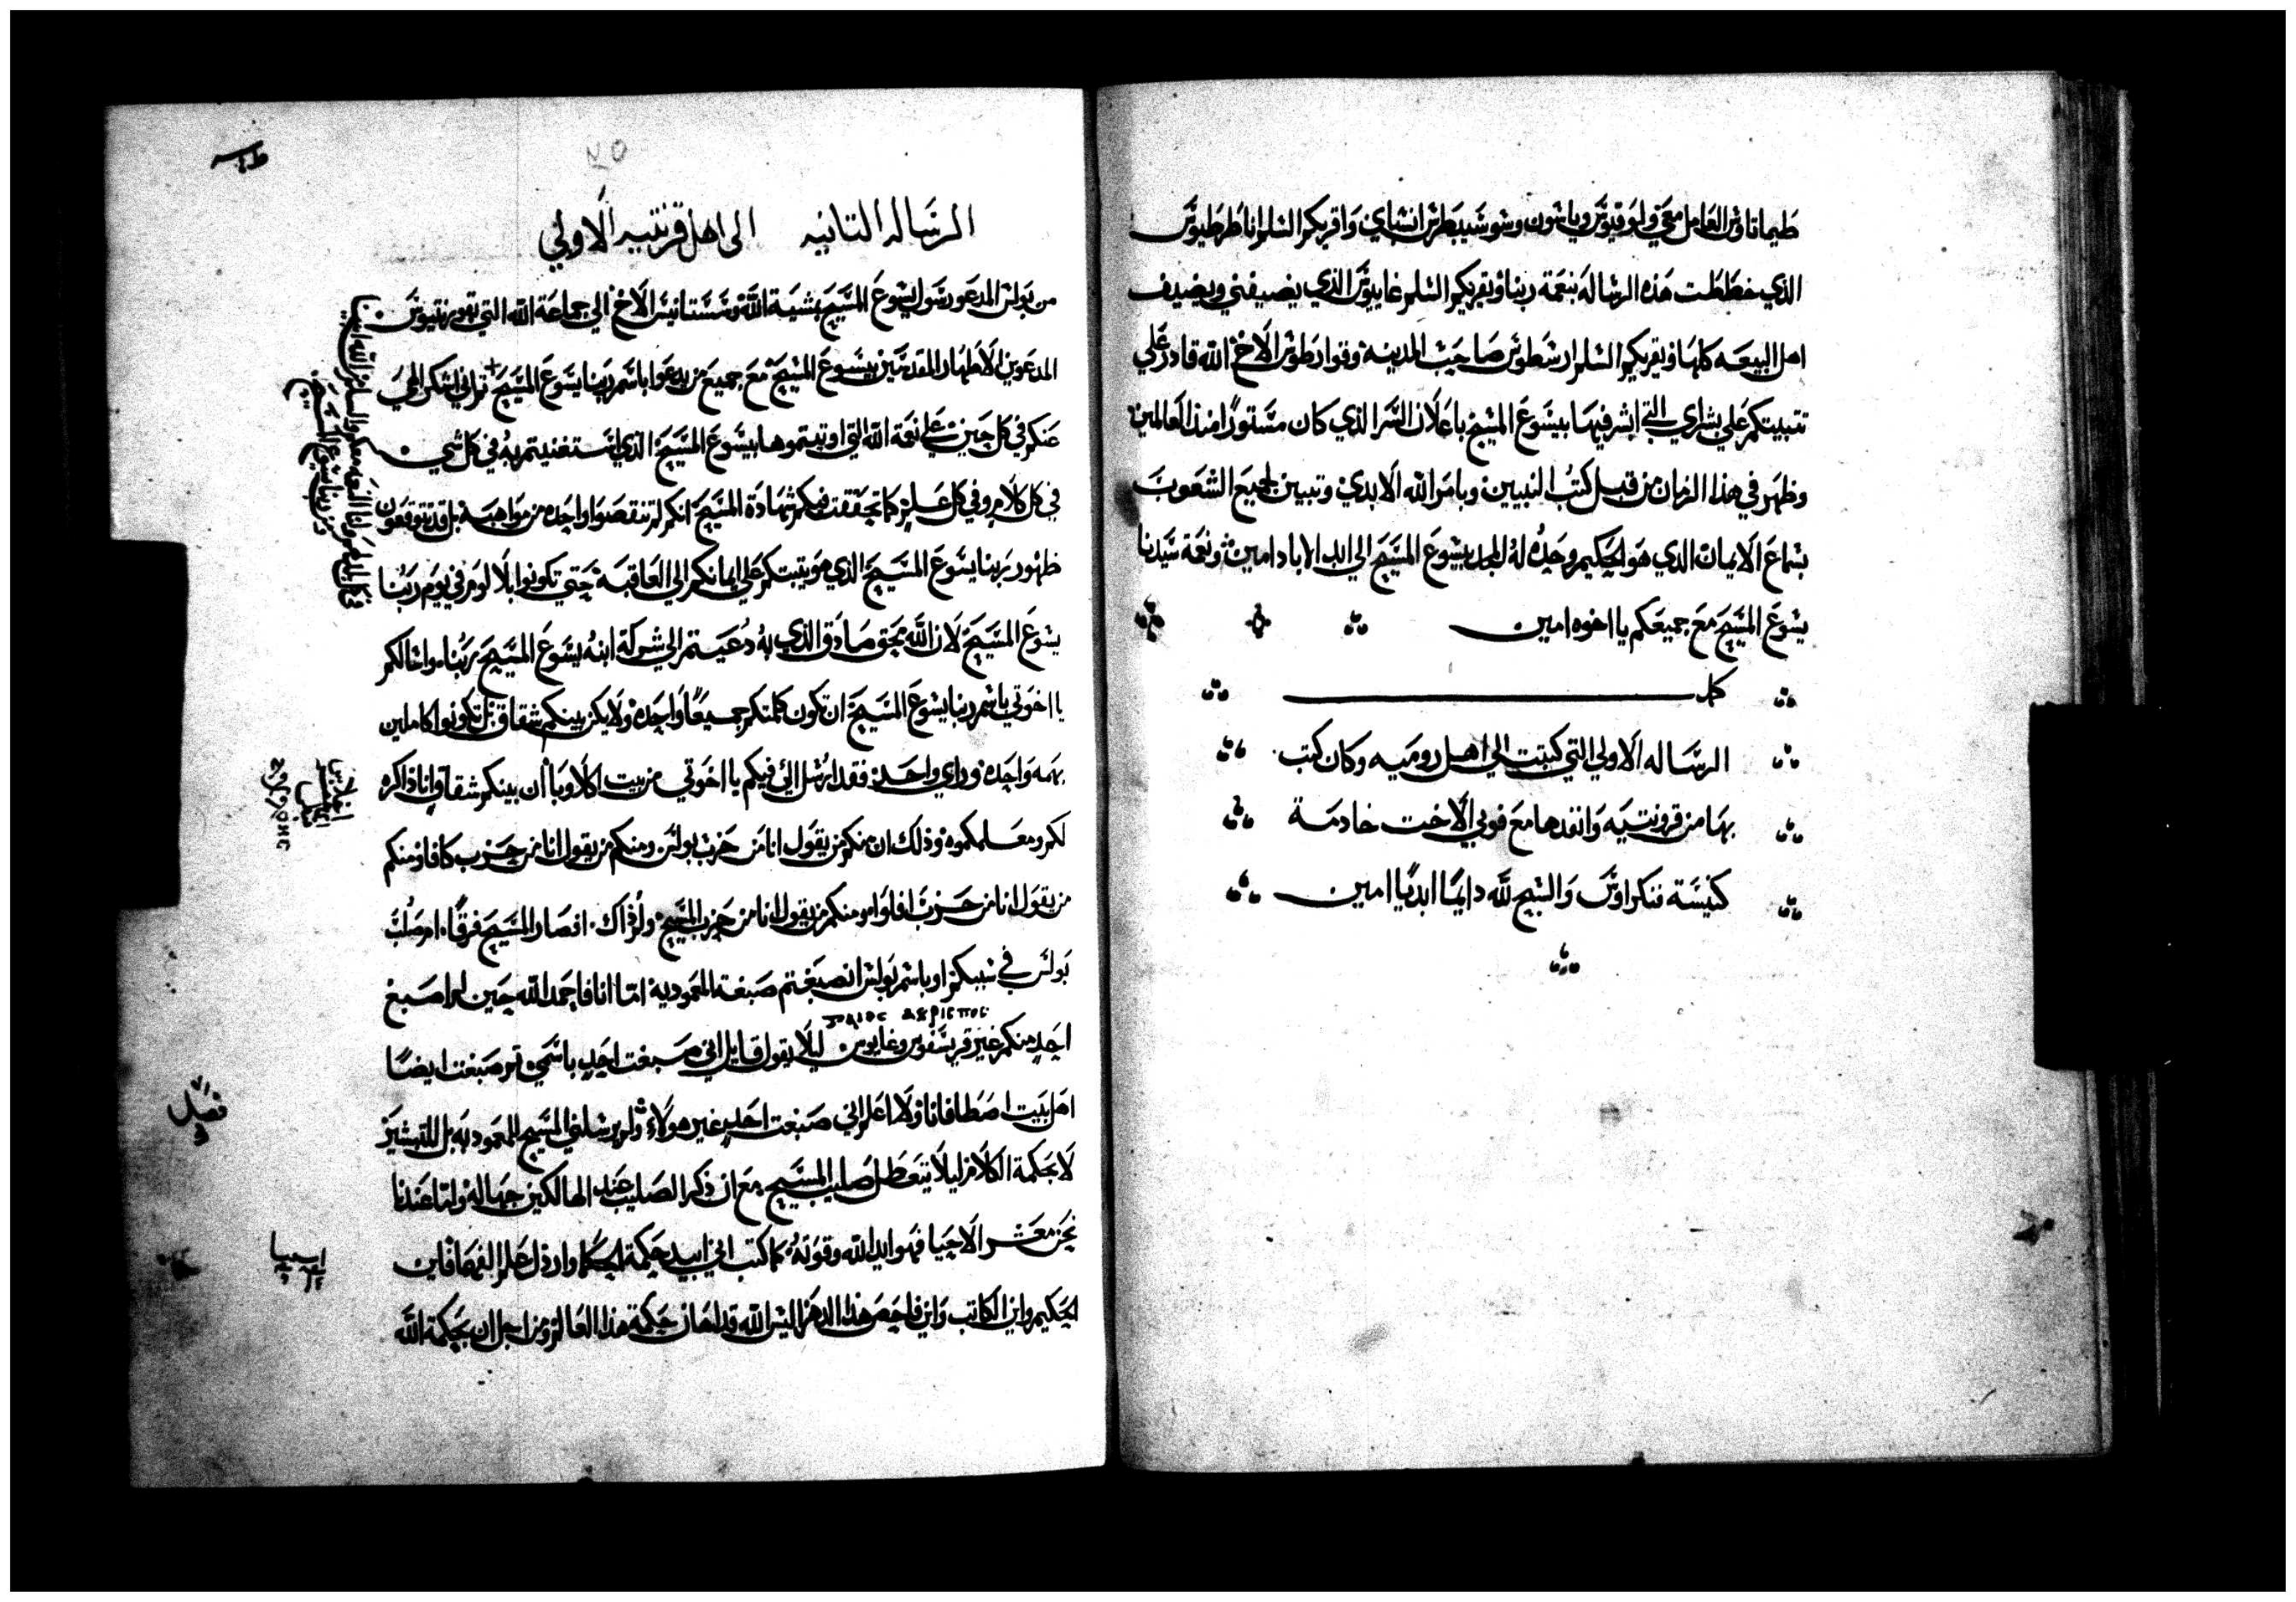 طيماتاوس العامل معي ولوقيوس وياسون وسوسيبطرس انسباي واقريكم السلم انا طرطيوس
الذي خططت هذه الرساله بنعمة ربنا ويقريكم السلم غاييوس الذي يضيفني ويضيف
اهل البيعه كلها ويقريكم السلم ارسطوس صاحب المدينه وقوارطوس الاخ الله قادر علي
تتبيتكم علي بشراي التي ابشر فيها بيسوع المسيح باعلان السر الذي كان مستورًا منذ العالمين
وظهر في هذا الزمان من قبل كتب النبيين وبامر الله الابدي وتبيين لجميع الشعوب
بسماع الايمان الذي هو الحكيم وحده له المجد بيسوع المسيح الي ابد الاباد امين ونعمة سيدنا
يسوع المسيح مع جميعكم يا اخوه امين
كمل
الرساله الاولي التي كتبت الي اهل روميه وكان كتب
بها من قرونتيه وانفدها مع فوبي الاخت خادمة
كنيسة ننكراوس والسبح لله دايمًا ابديًا امين
الرساله التانيه الى اهل قرنتيه الاولي
من بولس المدعو رسول يسوع المسيح بمشية الله وسستانيس الاخ الي جماعة الله التي بقورنتيوس
المدعوين الاطهار المقدسين بيسوع المسيح مع جميع من يدعوا باسم ربنا يسوع المسيح + تم اني اشكر الهي
عنكم في كل حين علي نعمة الله التي اوتيتموها بيسوع المسيح الذي استغنيتم به في كل شي
في كل كلام وفي كل علم كما تحققت فيكم شهادة المسيح انكم لم تنقصوا واحده من مواهبه بل قد تتوقعون
ظهور ربنا يسوع المسيح الذي هو يتبتكم علي ايمانكم الي العاقبه حتي تكونوا بلا لوم في يوم ربنا
يسوع المسيح لان الله بحق صادق الذي به دعيتم الي شركة ابنه يسوع المسيح ربنا واسالكم
يا اخوتي باسم ربنا يسوع المسيح ان تكون كلمتكم جميعًا واحده ولا يكن بينكم شقاق بل تكونوا كاملين
بهمه واحده وراي واحد فقد ارسل الي فيكم يا اخوتي من بيت اكلاوبا أن بينكم شقاق وانا ذاكره
لكم ومعلمكموه وذلك ان منكم من يقول انا من حزب بولس ومنكم من يقول انا من حزب كافا ومنكم
من يقول انا من حزب افلوا ومنكم من يقول انا من حزب المسيح ولم ذاك افصار المسيح فرقًا ام صلب
بولس في سببكم او باسم بولس انصبغتم صبغة المعمودية اما انا فاحمد الله حين لم اصبغ
احد منكم غير قريسفوس وغايوس ليلا يقول قايل اني صبغت احد باسمي تم صبغت ايضًا
اهل بيت اصطافانا ولا اعلم اني صبغت احد غير هولاء ولم يرسلني المسيح للمعموديه بل للتبشير
لا بحكمة الكلام ليلا يتعطل صليب المسيح مع ان ذكر الصليب عند الهالكين جهاله ولنا عندنا
نحن معشر الاحيا فهو ايد الله وقوته كما كتب اني ابيد حكمة الحكما وارذل علم الفهما فاين
الحكيم واين الكاتب واين فاحص هذا الدهر اليس الله قد اهان حكمة هذا العالم ومن اجل ان بحكمة الله
فصل